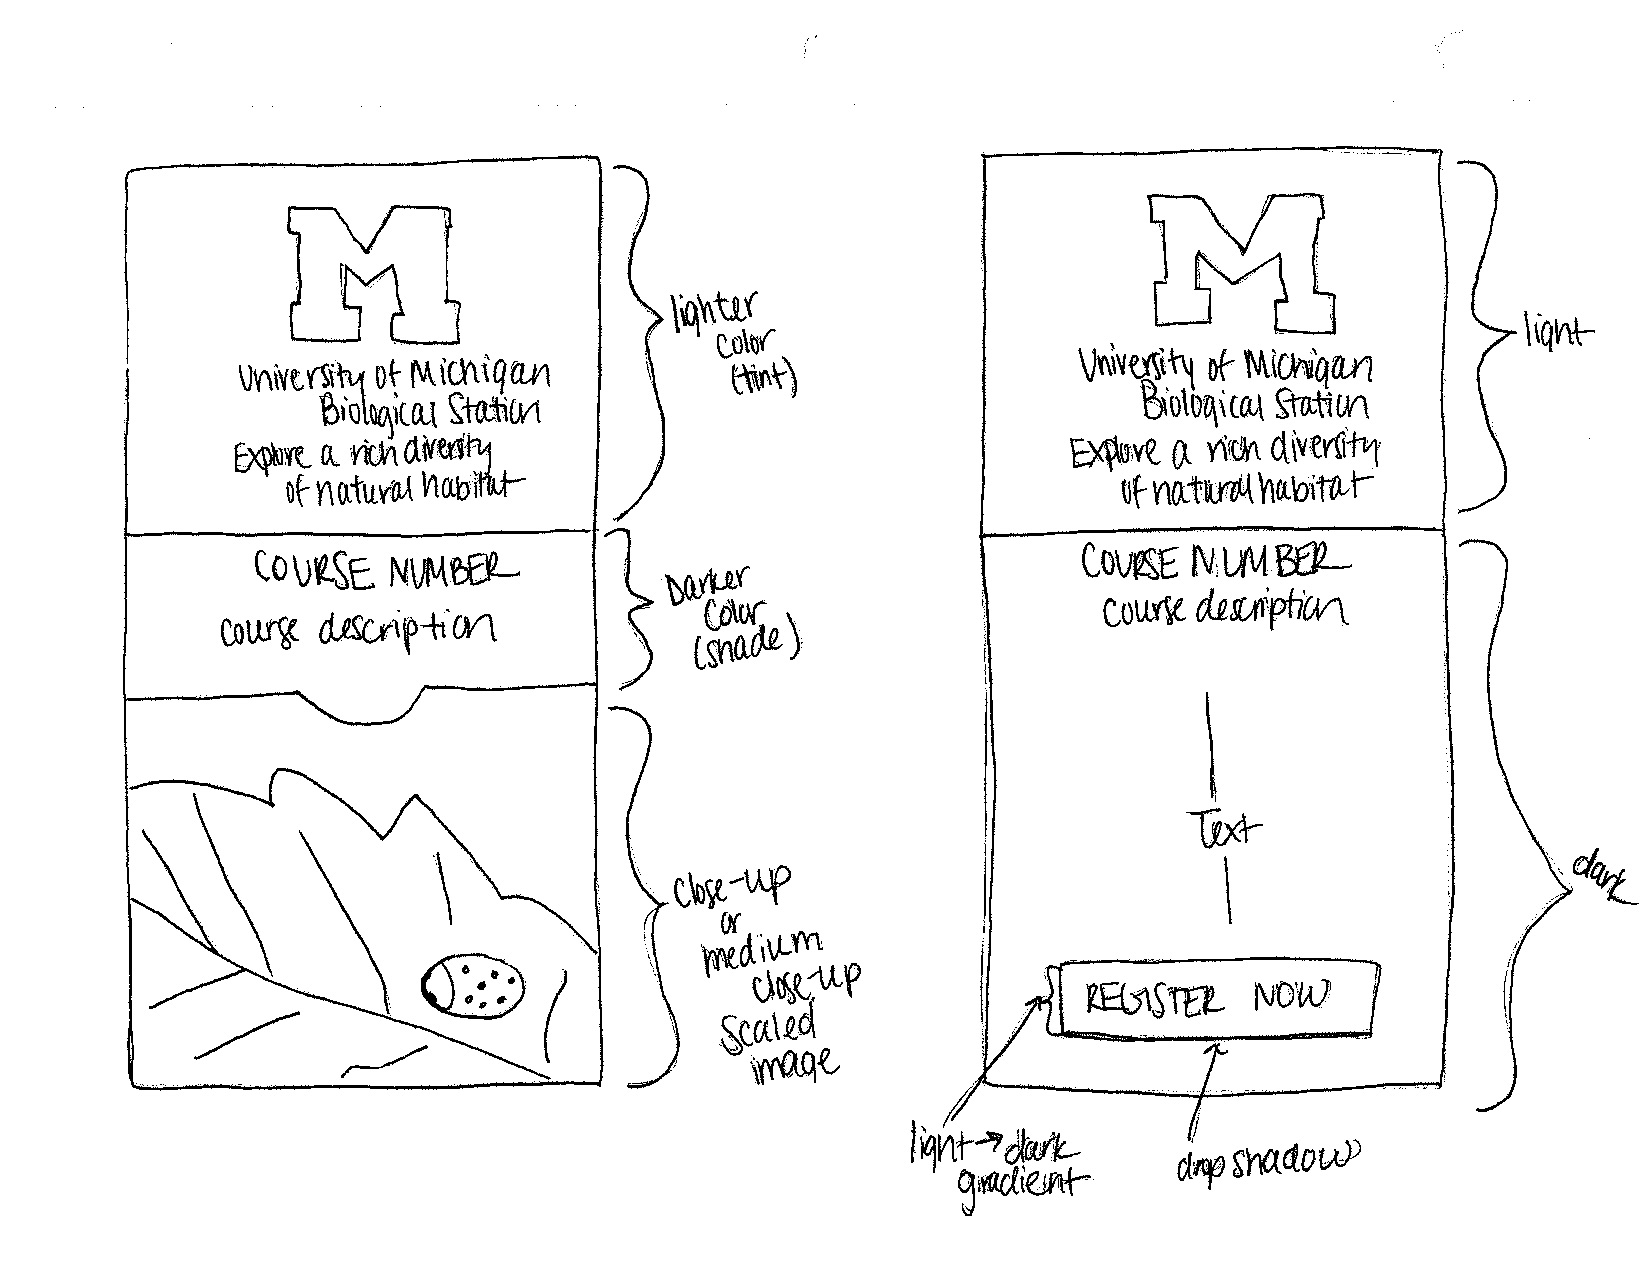 M
University of Michigan
Biological Station
Explore a rich diversity
of natural habitat
COURSE NUMBER
course description
lighter
color
(tint)
Darker
color
(shade)
close-up
or
medium
close-up
scaled
image
M
University of Michigan
Biological Station
Explore a rich diversity
of natural habitat
COURSE NUMBER
course description
Text
REGISTER NOW
light
dark
light → dark
gradient
drop shadow